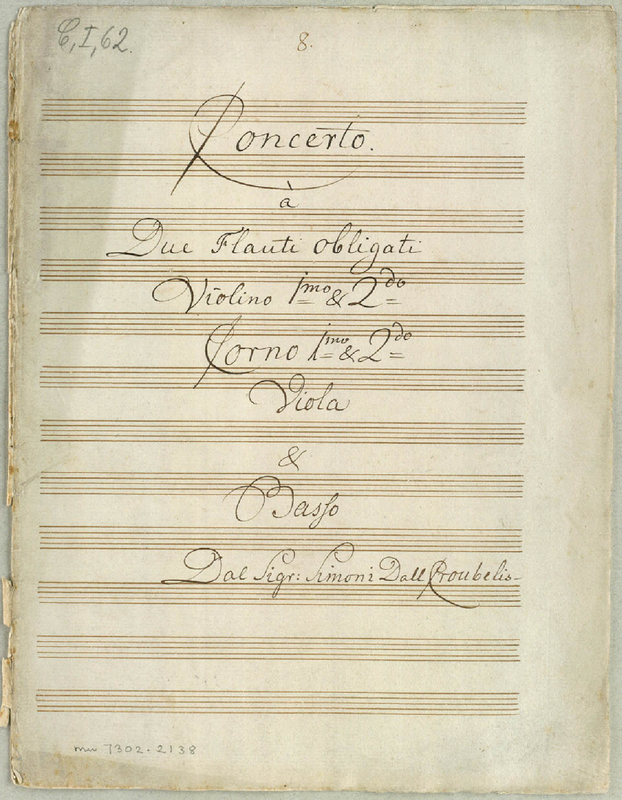 C, I, 62.
8.
Concerto.
à
Due Flauti obligati
Violino 1mo & 2do
Corno 1mo & 2do
Viola
&
Basso
Dal Sigr: Simoni Dall Croubelis
mu 7302.2138